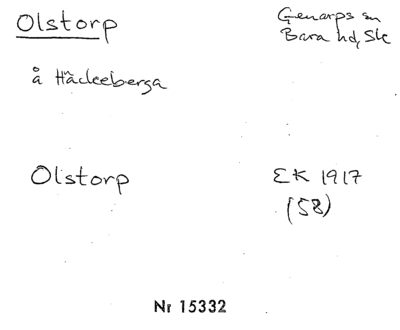 Olstorp
Genarps sn
Bara hd, Sk
å Häckeberga
Olstorp
EK 1917
(58)
Nr 15332